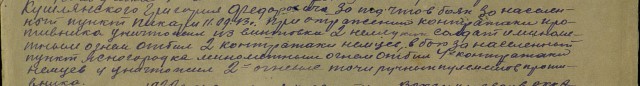 Григория Федоровича за то, что в боях за населен-
ный пункт 11.09.43г. при отражении контратаки про-
тивника уничтожил из винтовки 2 немецких солдат и миномет-
ным огнем отбил 2 контратаки немцев, в бою за населенный
пункт Ясногородка минометным огнем отбил 4 контратаки
немцев и уничтожил 2 огневые точки ручных пулеметов проти-
вника